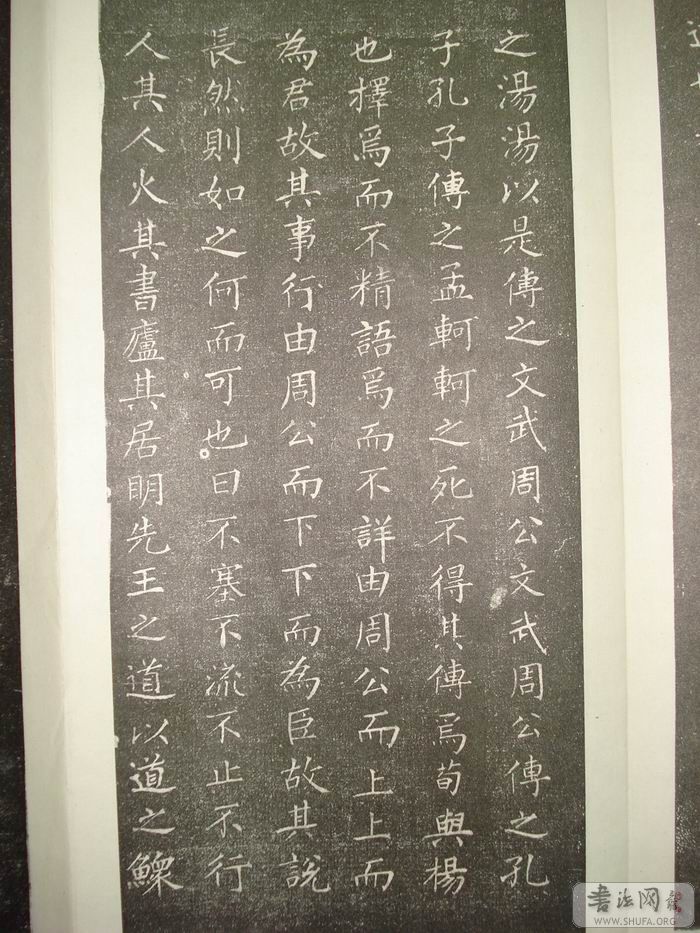 之湯湯以是傳之文武周公文武周公傳之孔
子孔子傳之孟軻軻之死不得其傳焉荀與楊
也擇焉而不精語焉而不詳由周公而上上而
為君故其事行由周公而下下而為臣故其說
長然則如之何而可也曰不塞不流不止不行
人其人火其書廬其居眀先王之道以道之鰥
书法网
WWW.SHUFA.ORG